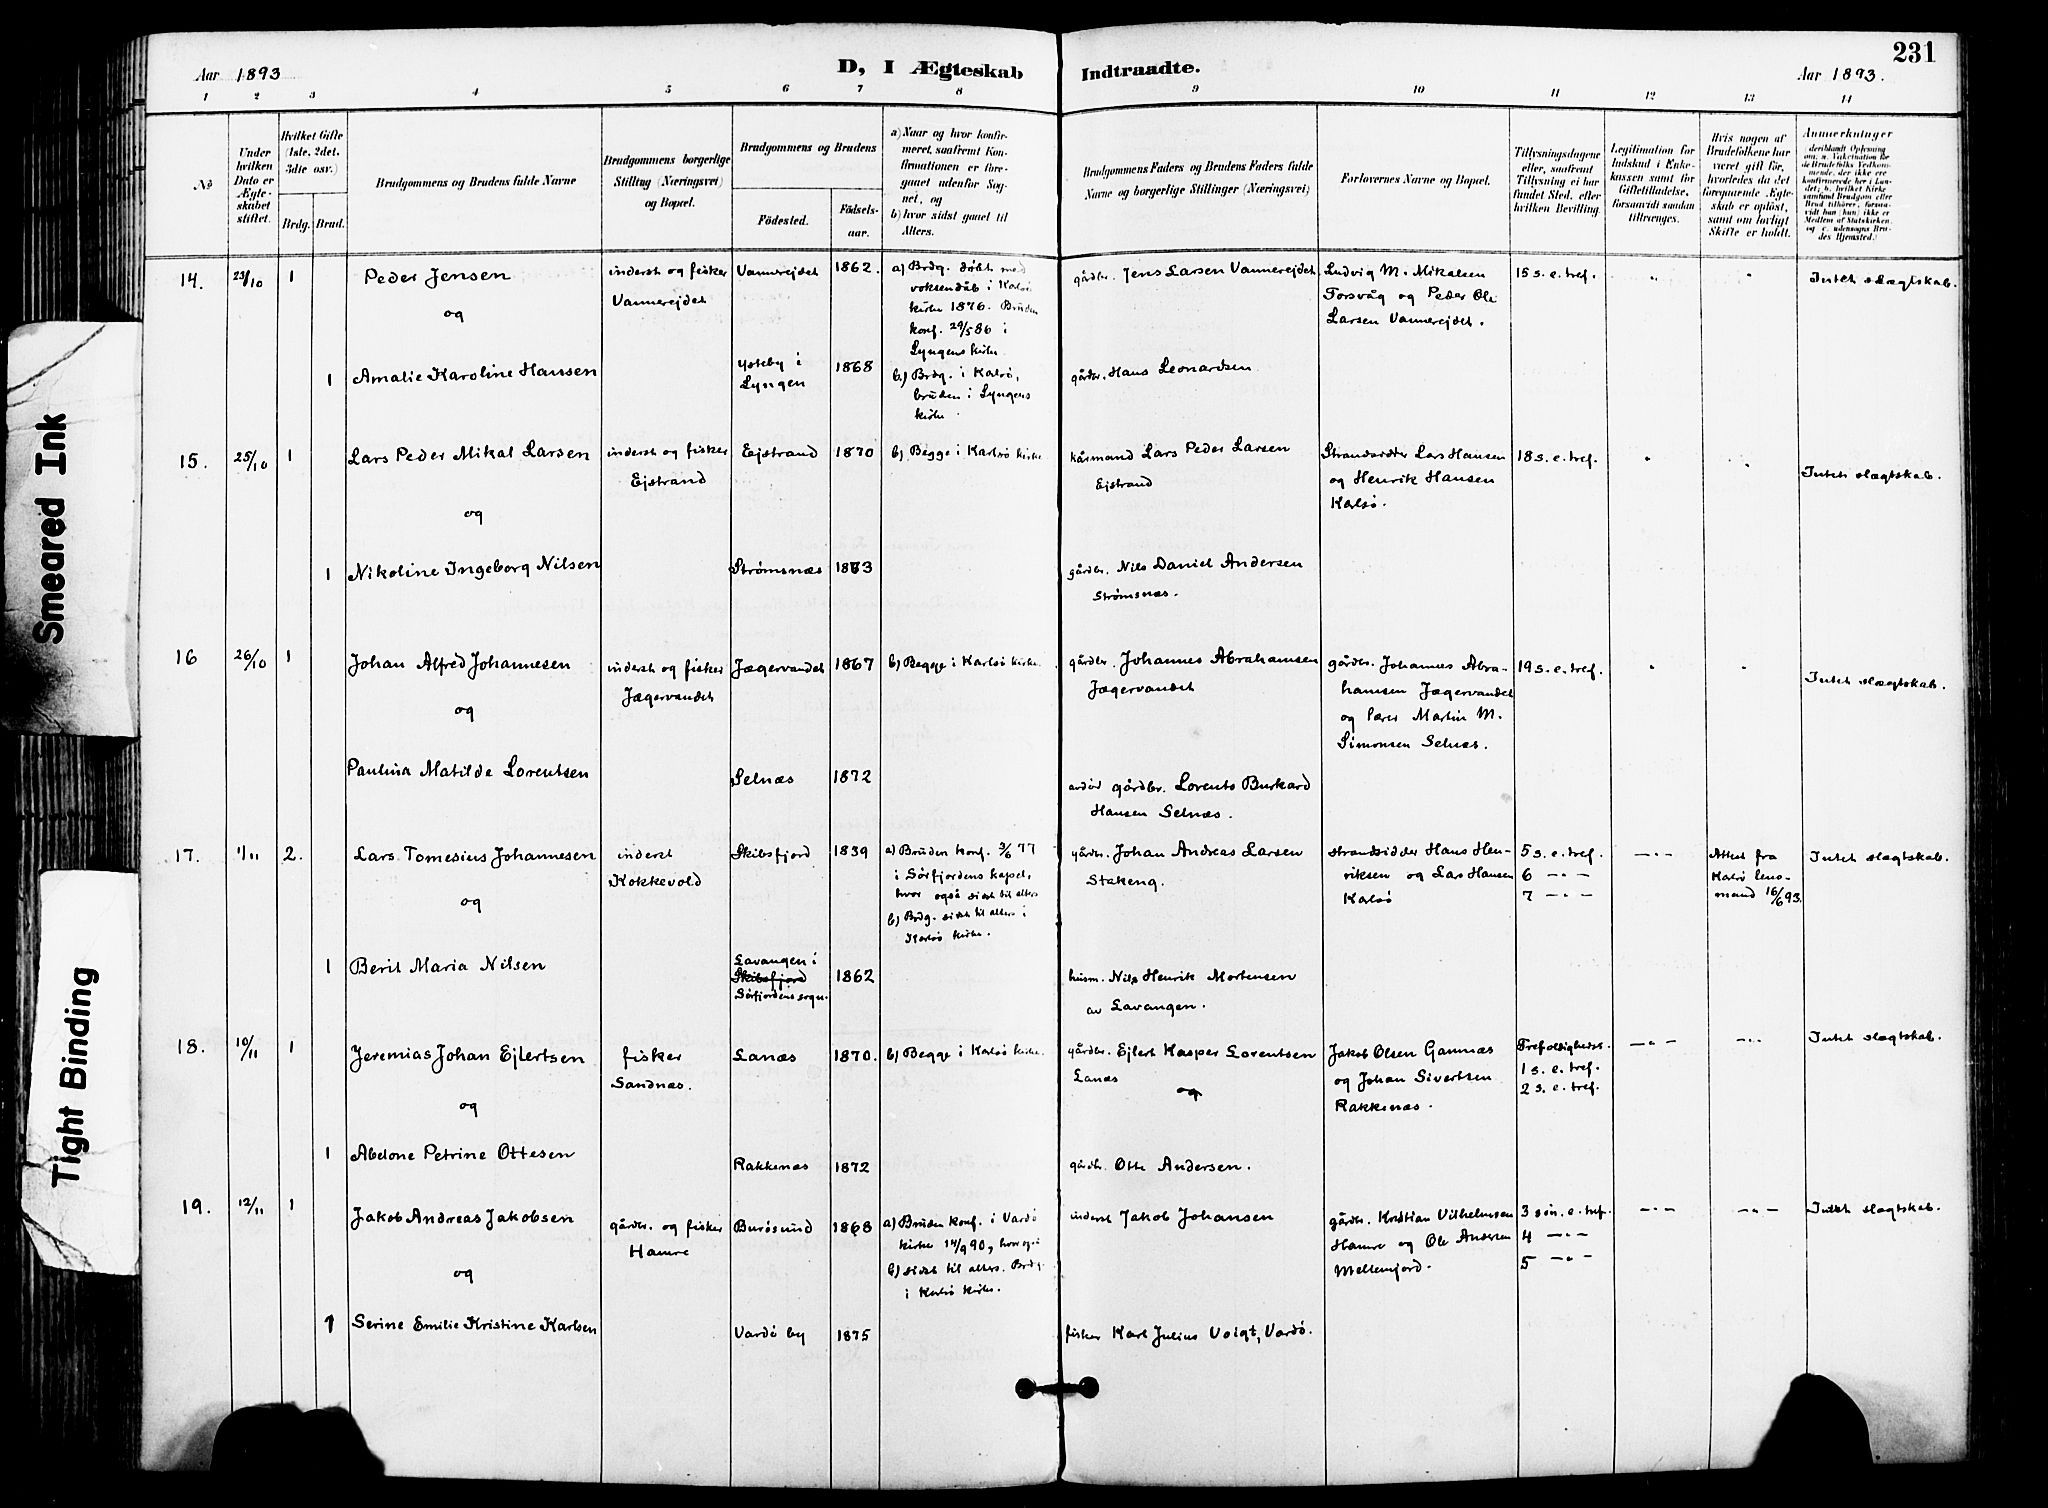 Smeared Ink
Tight Binding
231
Aar 1893
D, I Ægteskab
Indtraadte.
Aar 1893.
1 2 3 4 5 6 7 8 9 10 11 12 13 14
No
Under hvilken Dato er Ægteskabet stiftet.
Hvilket Gifte (1ste, 2det, 3die osv.)
Brdg. Brud.
Brudgommens og Brudens fulde Navne
Brudgommens borgerlige Stilling (Næringsvei) og Bopæl.
Brudgommens og Brudens
Födested.
Födsels-aar.
a) Naar og hvor konfirmeret, saafremt Konfirmationen er foregaaet udenfor Sognet, og
b) hvor sidst gaaet til Alters.
Brudgommens Faders og Brudens Faders fulde Navne og borgerlige Stillinger (Næringsvei)
Forlovernes Navne og Bopæl.
Tillysningsdagene eller, saafremt Tillysning ei har fundet Sted, efter hvilken Bevilling.
Legitimation for Indskud i Enkekassen samt for Giftetilladelse, forsaavidt saadan tiltrænges.
Hvis nogen af Brudefolkene har været gift för, hvorledes da det foregaaende Ægteskab er oplöst, samt om lovligt Skifte er holdt.
Anmerkninger
14.
23/10
1
Peder Jensen
og
1 Amalie Karoline Hansen
inderst og fisker
Vannerejdet
Vannerejdet
1862.
Ysteby i
Lyngen
1868
a) Brdg. døbt med
voksendåb i Karlsø
kirke 1876. Bruden
konf. 29/5 86 i
Lyngens kirke
b) Brdg. i Karlsø,
bruden i Lyngens
kirke.
gårdbr. Jens Larsen Vannerejdet
gårdbr. Hans Leonardsen
Ludvig M. Mikalsen
Torsvåg og Peder Ole
Larsen Vannerejdet.
15 s. e. tref.
Intet slægtskab.
15.
25/10
1
Lars Peder Mikal Larsen
og
1 Nikoline Ingeborg Nilsen
inderst og fisker
Ejstrand
Ejstrand
1870
Strømsnæs
1873
b) Begge i Karlsø kirke
kårmand Lars Peder Larsen
Ejstrand
gårdbr. Nils Daniel Andersen
Strømsnæs.
Strandsidder Lars Hansen
og Henrik Hansen
Karlsø.
18 s. e. tref.
Intet slægtskab.
16
26/10
1
Johan Alfred Johannesen
og
Paulina Matilde Lorentsen
inderst og fisker
Jægervandet
Jægervandet
1867
Selnæs
1872
b) Begge i Karlsø kirke.
gårdbr. Johannes Abrahamsen
Jægervandet
gårdbr. Lorents Burkard
Hansen Selnæs.
gårdbr. Johannes Abra-
hamsen Jægervandet
og lærer Martin M.
Simonsen Selnæs.
19 s. e. tref.
Intet slægtskab.
17.
1/11
2.
Lars Tomesius Johannesen
og
1 Beril Maria Nilsen
inderst
Kokkevold
Skibsfjord
1839
Lavangen i
Skibsfjord
Sørfjordens sogn.
1862
a) Bruden konf. 3/6 77
i Sørfjordens kapel,
hvor også sidst til alters
b) Brdg. sidst til alters i
Karlsø kirke.
gårdbr. Johan Andreas Larsen
Stakeng.
husm. Nils Henrik Mortensen
av Lavangen.
strandsidder Hans Hen-
riksen og Lars Hansen
Karlsø
5 s. e. tref.
6 — " —
7 — " —
— " —
Attest fra
Karlsø lens-
mand 16/6 93.
Intet slægtskab.
18.
10/11
1
Jeremias Johan Ejlertsen
og
1 Abelone Petrine Ottesen
fisker
Sandnæs.
Lanæs
1870.
Rakkenæs
1872
b) Begge i Karlsø kirke.
gårdbr. Ejlert Kasper Lorentsen
Lanæs
og
gårdbr. Otte Andersen.
Jakob Olsen Gamnæs
og Johan Sivertsen
Rakkenæs.
Trefoldighedss.
1 s. e. tref.
2 s. e. tref.
— " —
Intet slægtskab.
19.
12/11
1
Jakob Andreas Jakobsen
og
1 Serine Emilie Kristine Karlsen
gårdbr. og fisker
Hamre
Burøsund
1868
Vardø by
1875
a) Bruden konf. i Vardø
kirke 14/9 90, hvor også
b) sidst til alters. Brdg.
i Karlsø kirke.
inderst Jakob Johansen
fisker Karl Julius Voigt, Vardø.
gårdbr. Kristian Vilhelmsen
Hamre og Ole Andersen
Mellemjord.
3 søn. e. tref.
4 — " —
5 — " —
— " —
— " —
Intet slægtskab.